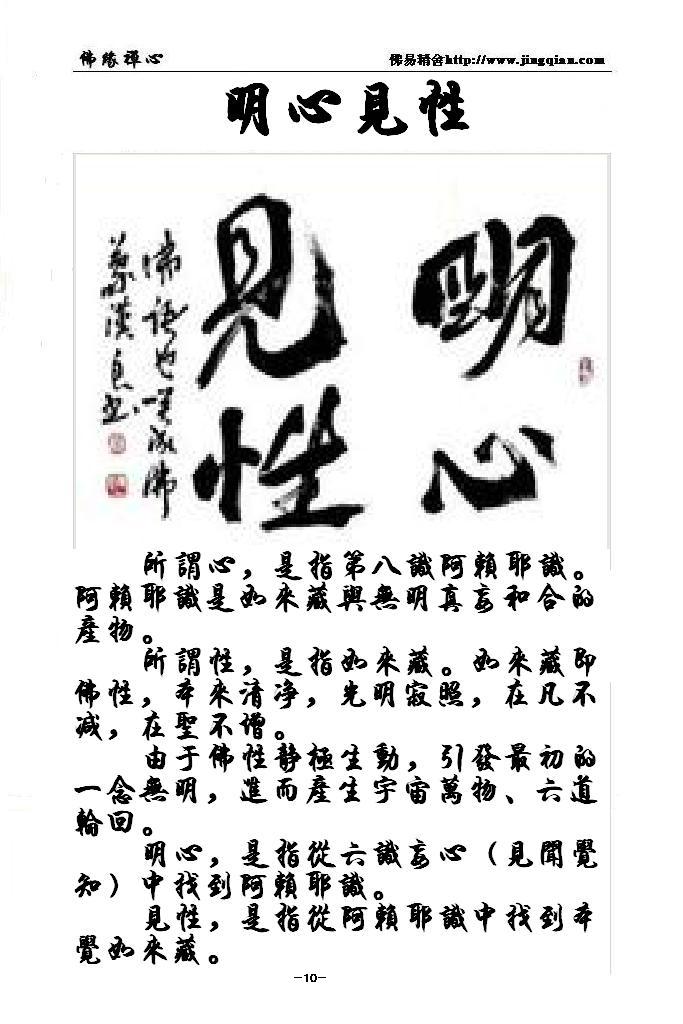 佛緣禪心
佛易精舍http://www.jingqian.com
明心見性
明心
見性
佛
佛
所謂心，是指第八識阿賴耶識。
阿賴耶識是如來藏與無明真妄和合的
產物。
所謂性，是指如來藏。如來藏即
佛性，本來清净，光明寂照，在凡不
减，在聖不增。
由于佛性静極生動，引發最初的
一念無明，進而產生宇宙萬物、六道
輪回。
明心，是指從六識妄心（見聞覺
知）中找到阿賴耶識。
見性，是指從阿賴耶識中找到本
覺如來藏。
-10-